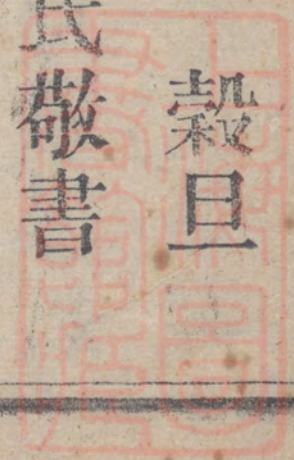 穀旦
氏敬書